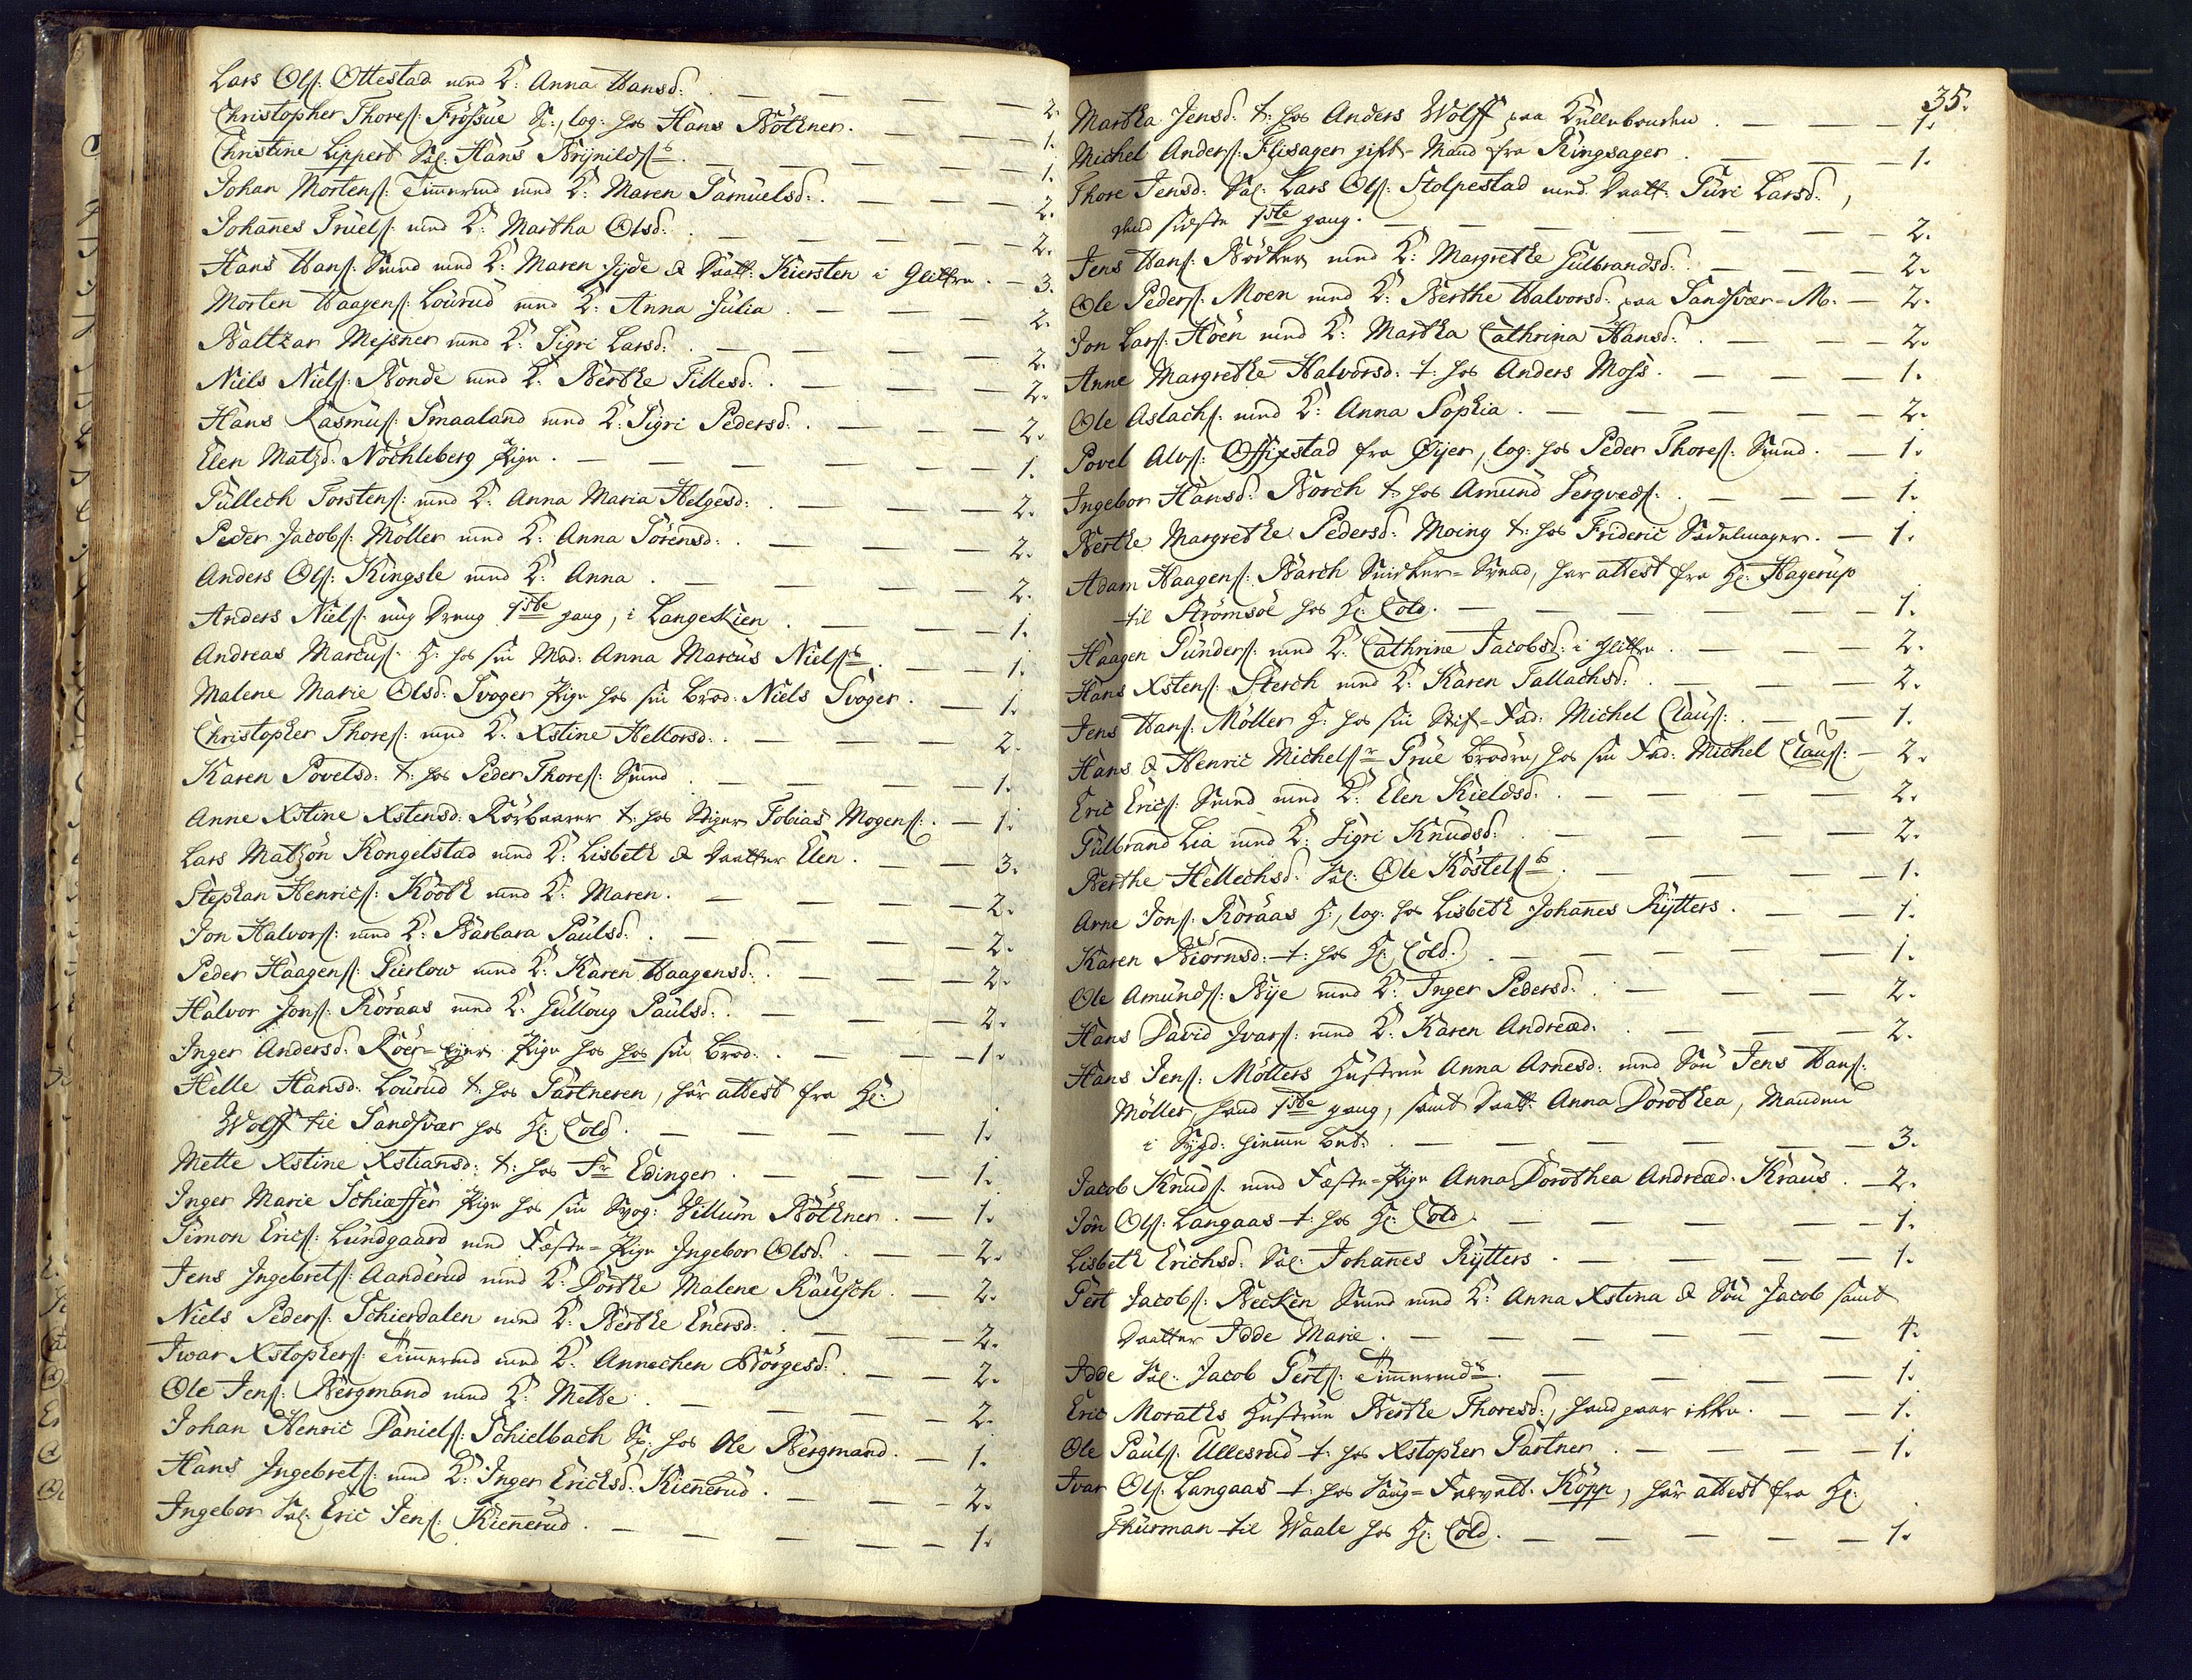 Lars Ols: Ottestad med K: Anna Hansd: 2.
Christopher Thores: Frössue S:, log: hos Hans Bötkner. 1.
Christine Lippert Sal: Hans Brynilds:s 1.
Johan Mortens: Timmermd med K: Maren Samuelsd: 2.
Johañes Truels: med K: Martha Olsd: 2.
Hans Hans: Smed med K: Maren Jyde & Daatt: Kiersten i Glittre. 3.
Morten Haagens: Lourud med K: Anna Julia. 2.
Baltzar Mejsner med K: Sigri Larsd: 2.
Niels Niels: Bonde med K: Berthe Tillesd: 2.
Hans Rasmus: Smaaland med K: Sigri Pedersd: 2.
Elen Matzd: Nöchleberg Pige. 1.
Gullech Torstens: med K: Anna Maria Helgesd: 2.
Peder Jacobs: Möller med K: Anna Sörensd: 2.
Anders Ols: Kingsle med K: Anna. 2.
Anders Niels: ung Dreng 1ste gang, i Langeskien 1.
Andreas Marcus: H: hos sin Mod: Anna Marcus Niels:s 1.
Malene Marie Olsd: Svoger Pige hos sin Brod: Niels Svoger. 1.
Christopher Thores: med K: Xstine Hellorsd: 2.
Karen Povelsd: t: hos Peder Thores: Smed 1.
Anne Xstine Xstensd: Rörbaarer t: hos Stiger Tobias Mogens: 1.
Lars Matzön Kongelstad med K: Lisbeth & Daatter Elen. 3.
Stephan Henrics: Rooth med K: Maren. 2.
Jon Halvors: med K: Barbara Paulsd: 2.
Peder Haagens: Purlow med K: Karen Haagensd: 2.
Halvor Jons: Röraas med K: Gulloug Paulsd: 2.
Inger Andersd: Röer= Pige hos hos sin Brod: 1.
Helle Hansd: Lourud t: hos Gartneren, har attest fra Hr:
Wolff til Sandsvær hos Hr: Cold. 1.
Mette Xstine Xstiansd: t: hos Fr Edinger. 1.
Inger Marie Schiæffer Pige hos sin Svog: Villum Bötkner. 1.
Simon Erics: Lundgaard med Fæste=Pige Ingebor Olsd. 2.
Jens Ingebrets: Aanderud med K: Dorthe Malene Rausch. 2.
Niels Peders: Schierdalen med K: Berthe Enersd: 2.
Iwar Xstophers: Timmermd med K: Annechen Börgesd: 2.
Ole Jens: Bergmand med K: Mette 2.
Johan Henric Daniels: Schielbach S: hos Ole Bergmand. 1.
Hans Ingebrets: med K: Inger Erichsd: Kieñerud. 2.
Ingebor Sal: Eric Jens: Kieñerud. 1.
35.
Martha Jensd: t: hos Anders Wolff paa Kullebonden. 1.
Michel Anders: Flisager gift-Mand fra Ringsager. 1.
Thore Jensd: Sal: Lars Ols: Stolpestad med Daatt: Guri Larsd:,
sidste 1ste gang. 2.
Jens Hans: Bödker med K: Margrethe Gulbrandsd: 2.
Ole Peders: Moen med K: Berthe Halvorsd: paa Sandsvær-M. 2.
Jon Lars: Hoen med K: Martha Cathrina Hansd: 2.
Anne Margrethe Halvorsd: t: hos Anders Moss. 1.
Ole Aslachs: med K: Anna Sophia. 2.
Povel Alvs: Offigstad fra Øijer, log: hos Peder Thores: Smed. 1.
Ingebor Hansd: Borch t: hos Amund Sergveds: 1.
Berthe Margrethe Pedersd: Moing t: hos Frideric Sadelmager. 1.
Adam Haagens: Barch Snidker=Svend, har attest fra Hr: Hagerup
til Strömsöe hos Hr: Cold. 1.
Haagen Gunders: med K: Cathrine Jacobsd: i Glittre 2.
Hans Xstens: Sterch med K: Karen Tallachsd: 2.
Jens Hans: Möller H: hos sin Stif=Fad: Michel Claus: 1.
Hans & Henric Michels:r Grue brödre, hos sin Fad: Michel Claus: 2.
Eric Erics: Smed med K: Elen Kieldsd: 2.
Gulbrand Lia med K: Sigri Knudsd: 2.
Berthe Hellechsd: Sal: Ole Köstels:s 1.
Arne Jons: Röraas H:, log: hos Lisbeth Johañes Rytters. 1.
Karen Biörnsd: t: hos Hr: Cold. 1.
Ole Amunds: Bye med K: Inger Pedersd: 2.
Hans David Ivars: med K: Karen Andreæd: 2.
Hans Jens: Möllers Hustrue Anna Arnesd: med Sön Jens Hans:
Möller, hand 1ste gang, samt Daatt: Anna Dorothea, Manden
i Sygd: hiemme bet: 3.
Jacob Knuds: med Fæste=Pige Anna Dorothea Andreæd: Kraus. 2.
Jön Ols: Langaas t: hos Hr: Cold. 1.
Lisbeth Erichsd: Sal: Johañes Rytters. 1.
Gert Jacobs: Becken Smed med K: Anna Xstina & Sön Jacob samt
Daatter Idde Marie. 4.
Idde Sal: Jacob Gerts: Timmermds. 1.
Eric Moraths Hustrue Berthe Thoresd:, hand gaar ikke. 1.
Ole Pauls: Ullesrud t: hos Xstopher Gartner. 1.
Ivar Ols: Langaas t: hos Saug=Forvalt: Köpp, har attest fra Hr:
Thurman til Waale hos Hr: Cold. 1.